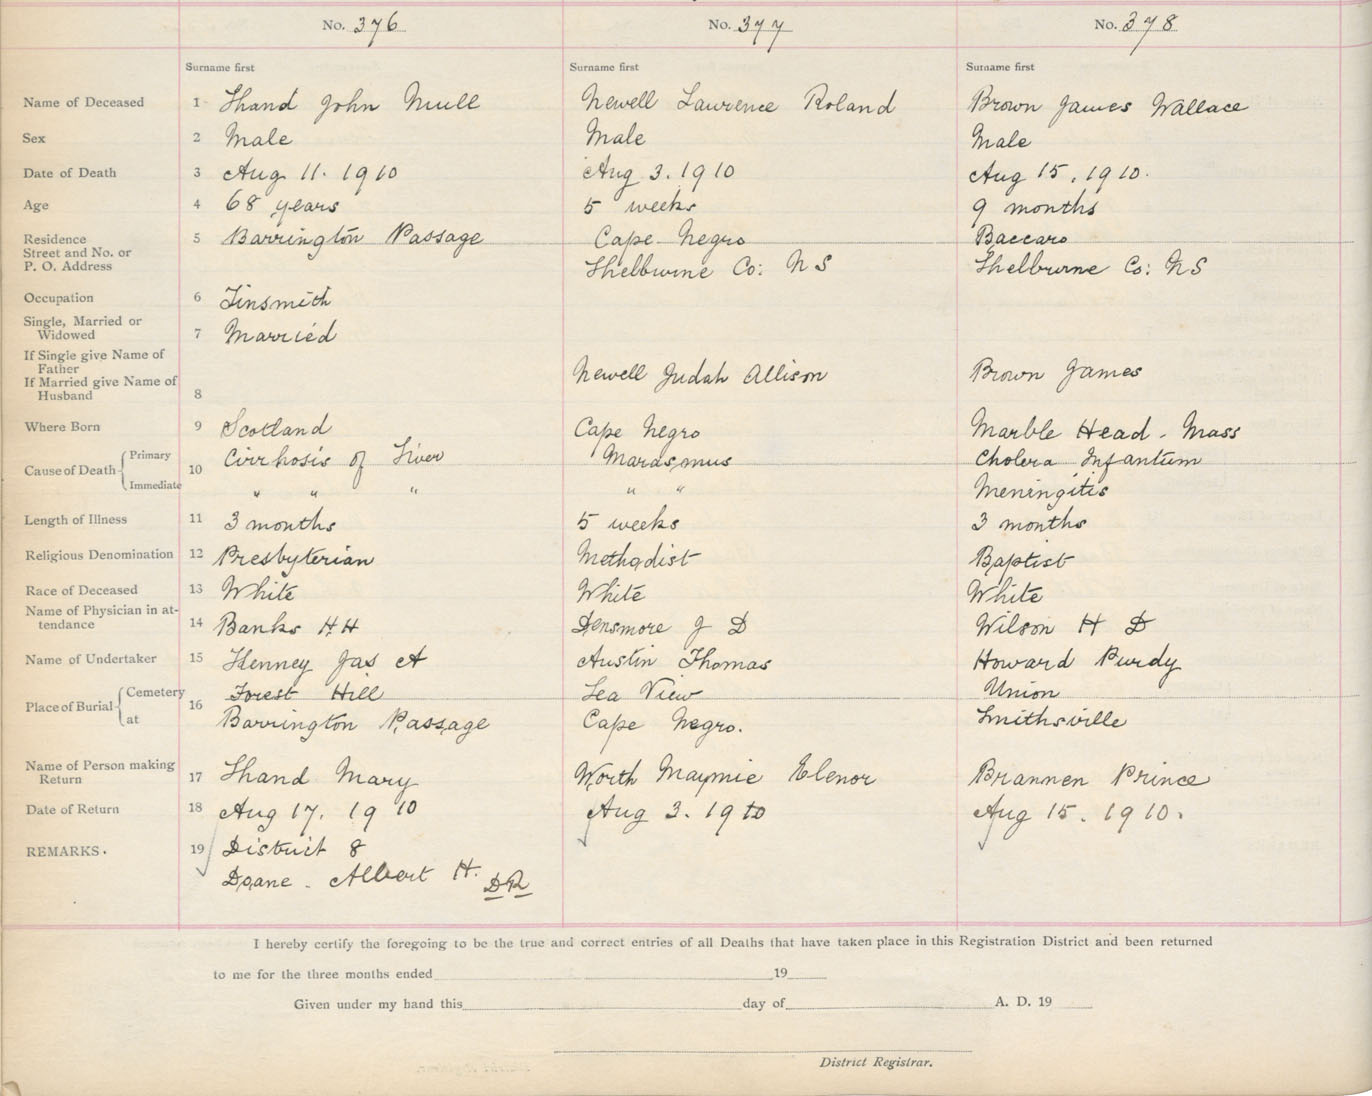 No. 376 No. 377 No. 378
Surname first Surname first Surname first
Name of Deceased 1 Shand John Mull Newell Lawrence Roland Brown James Wallace
Sex 2 Male Male Male
Date of Death 3 Aug 11. 1910 Aug 3. 1910 Aug 15, 1910.
Age 4 68 years 5 weeks 9 months
Residence 5 Barrington Passage Cape Negro Baccaro
Street and No. or
P. O. Address Shelburne Co: N S Shelburne Co: N S
Occupation 6 Tinsmith
Single, Married or
Widowed 7 Married
If Single give Name of
Father Newell Judah Allison Brown James
If Married give Name of
Husband 8
Where Born 9 Scotland Cape Negro Marble Head - Mass
Cause of Death Primary 10 Cirrhosis of Liver Marasmus Cholera Infantum
Immediate " " " " " Meningitis
Length of Illness 11 3 months 5 weeks 3 months
Religious Denomination 12 Presbyterian Methodist Baptist
Race of Deceased 13 White White White
Name of Physician in at-
tendance 14 Banks H H Densmore J D Wilson H D
Name of Undertaker 15 Kenney Jas A Austin Thomas Howard Purdy
Place of Burial Cemetery 16 Forest Hill Sea View Union
at Barrington Passage Cape Negro. Smithsville
Name of Person making
Return 17 Shand Mary Worth Maymie Elenor Brannen Prince
Date of Return 18 Aug 17. 1910 Aug 3. 1910 Aug 15. 1910.
REMARKS. 19 District 8
Doane - Albert H. DR
I hereby certify the foregoing to be the true and correct entries of all Deaths that have taken place in this Registration District and been returned
to me for the three months ended 19
Given under my hand this day of A. D. 19
District Registrar.